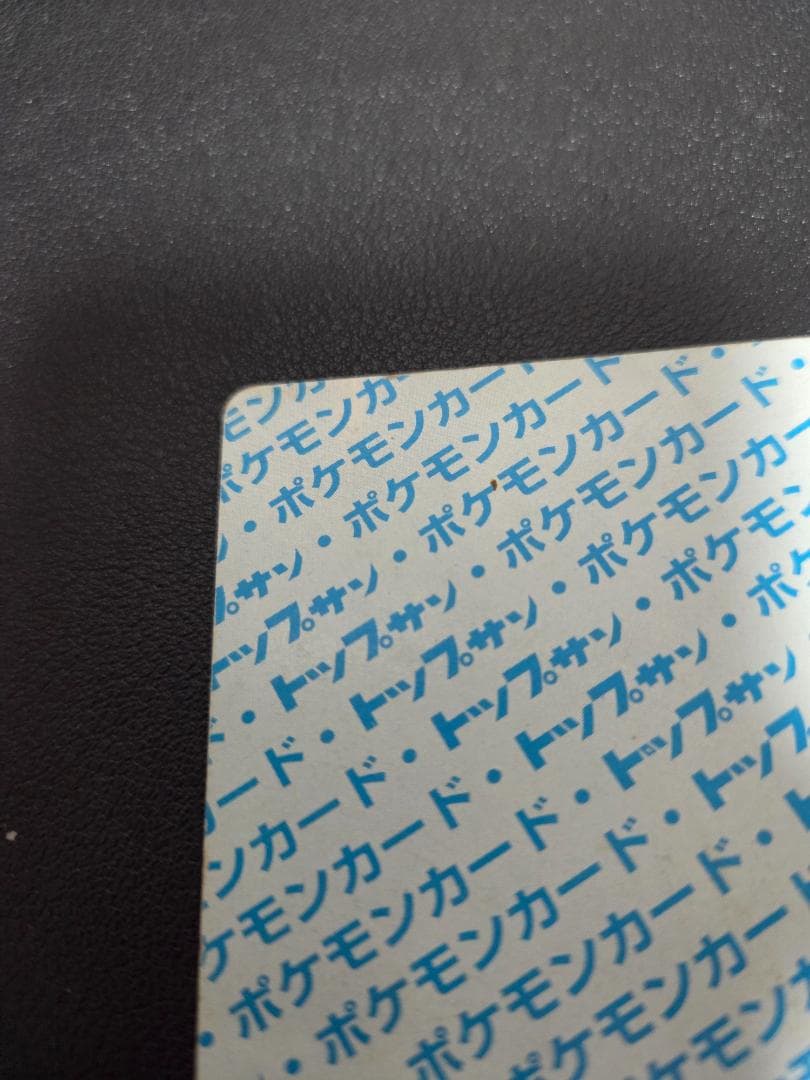 モンカ
ポケモンカー
ン・ポケモンカード
プサン・ポケモンカード
トップサン・ポケモンカード・
・トップサン・ポケモンカード・
カード・トップサン・ポケモンカー
ンカード・トップサン・ポケモン
ケモンカード・トップサン・ポケ
・ポケモンカード・トップサン
・ポケモンカード・トップ
ポケモンカード・ト
ポケモンカー
ケモンカ